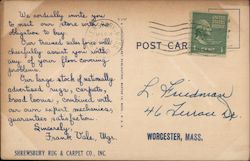 We cordially invite you
to visit our store with no
obligation to buy.
Our trained sales force will
cheerfully assist you with
any of your floor covering
problems.
Our large stock of nationally
advertised rugs, carpets,
broad looms, combined with
our own expert mechanics,
guarantees satisfaction.
Sincerely,
Frank Vale, Mgr.
SHREWSBURY RUG & CARPET CO., INC.
POST CAR
L. Friedman
46
WORCESTER, MASS.